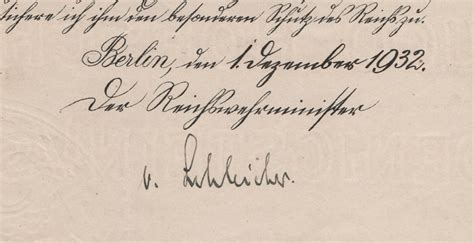 sichere ich ihm den besonderen Schutz des Reichs zu.
Berlin, den 1. Dezember 1932.
Der Reichswehrminister
v. Schleicher.